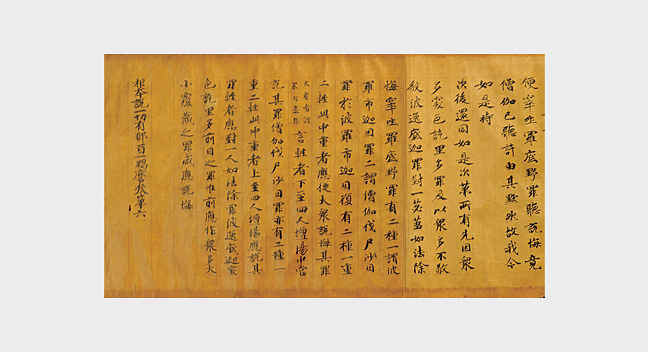 便窣吐羅底野罪聽說悔竟
僧伽已聽許由其默然故我今
如是持
次後還同如是次第所有先因衆
多突色訖里多罪及以衆多不敬
教波逸底迦罪對一苾芻如法除
悔窣吐羅底野罪有二種一謂波
羅市迦因罪二謂僧伽伐尸沙因
罪於波羅市迦因復有二種一重
二輕此中重者應從大衆說悔其罪
言輕者下至四人壇場中當
說其罪僧伽伐尸沙因罪亦有二種一
重二輕此中重者上至四人壇場應說其
罪輕者應對一人如法除罪波逸底迦突
色訖里多前目之罪惟前應作衆多大
小覆藏之罪咸應說悔
根本說一切有部百一羯磨卷第六